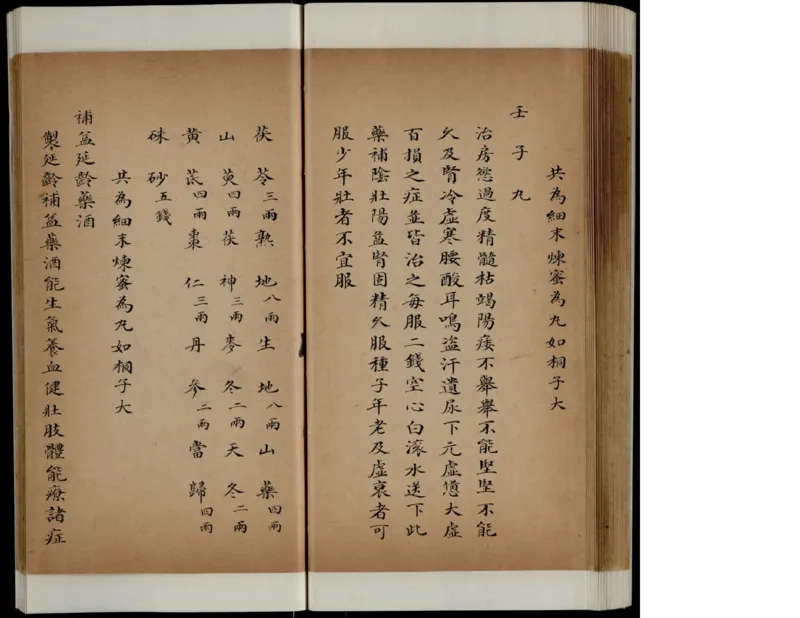 共為細末煉蜜為丸如桐子大
壬子丸
治房慾過度精髓枯竭陽痿不舉舉不能堅堅不能
久及腎冷虛寒腰酸耳鳴盗汗遺尿下元虛憊大虛
百損之症並皆治之每服二錢空心白滾水送下此
藥補陰壯陽益腎固精久服種子年老及虛衰者可
服少年壯者不宜服
茯苓三兩熟地八兩生地八兩山藥四兩
山萸四兩茯神三兩麥冬二兩天冬二兩
黃茋四兩棗仁三兩丹參二兩當歸四兩
硃砂五錢
共為細末煉蜜為丸如桐子大
補益延齡藥酒
製延齡補益藥酒能生氣養血健壯肢體能療諸症